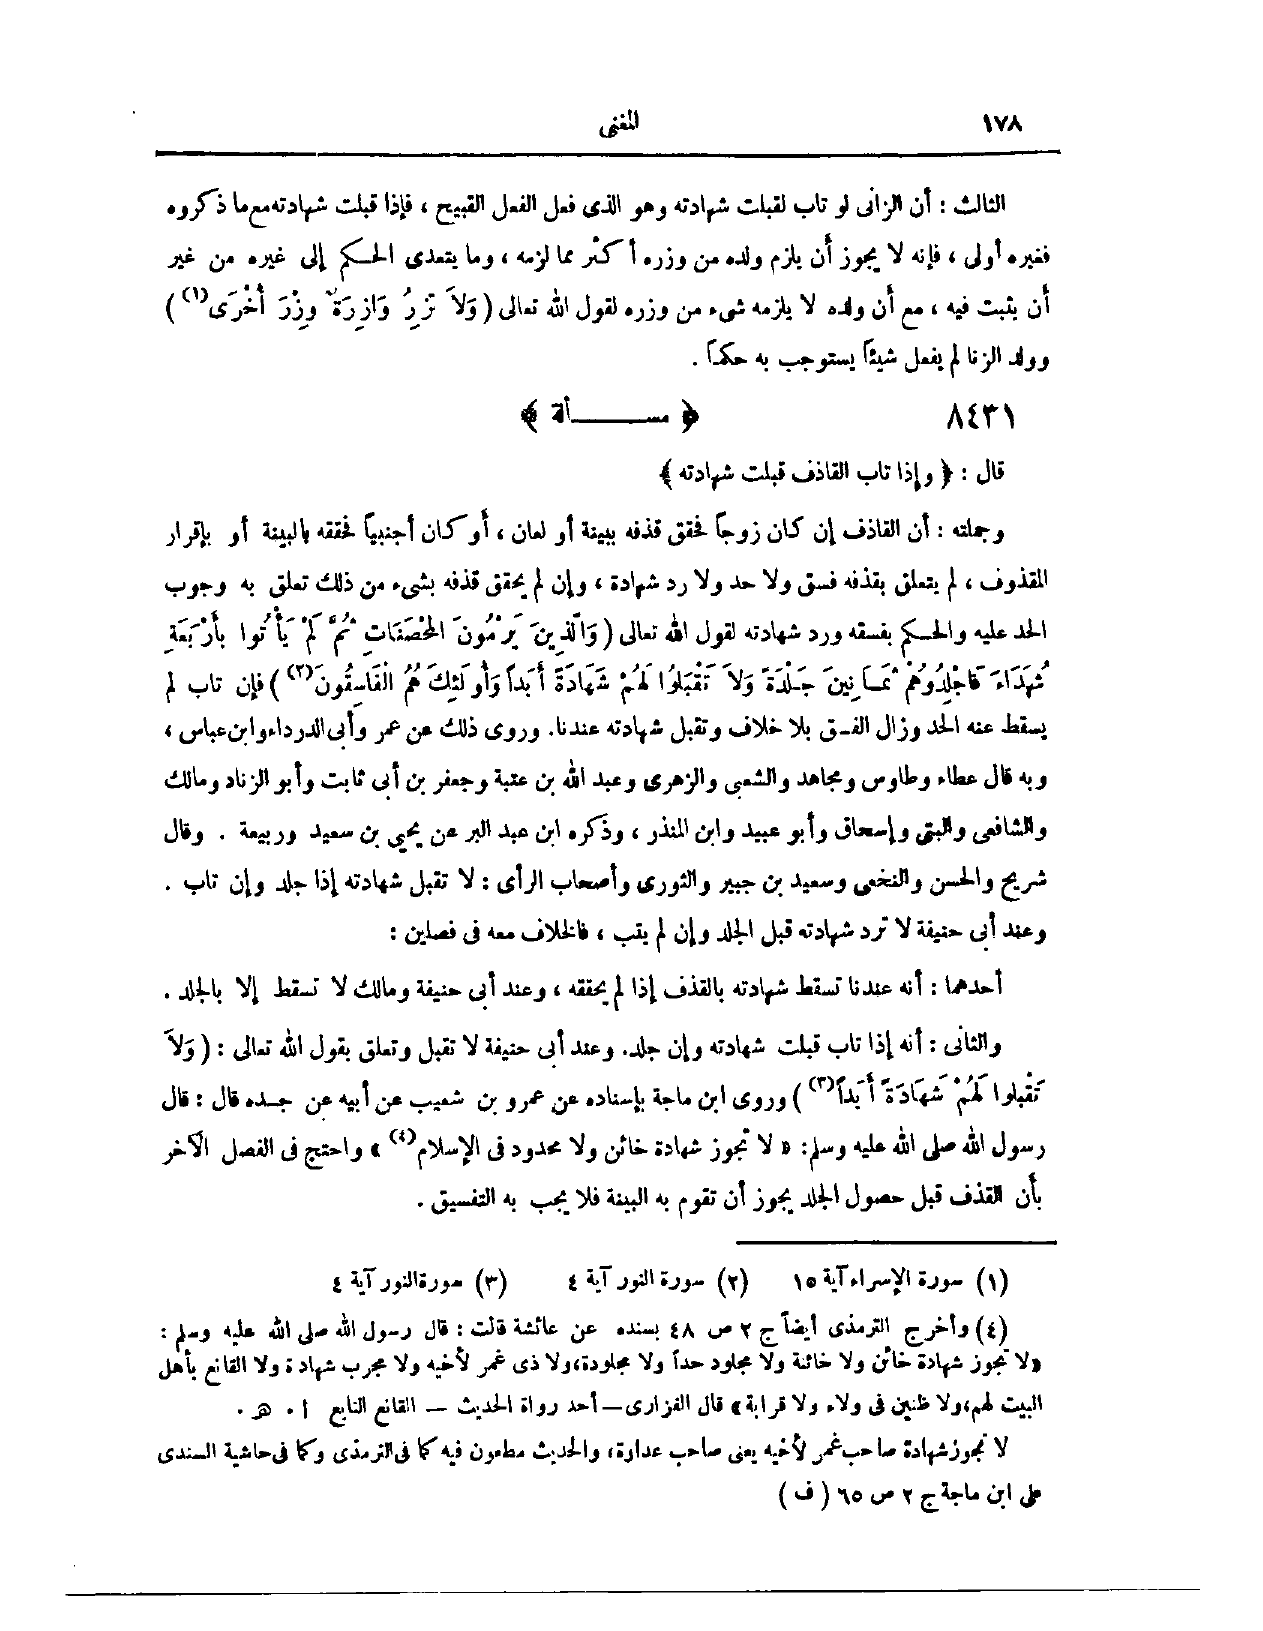 ١٧٨ المغنى
الثالث : أن الزانى لو تاب لقبلت شهادته وهو الذى فعل الفعل القبيح ، فإذا قبلت شهادته مع ما ذكروه
فغيره أولى ، فإنه لا يجوز أن يلزم ولده من وزره أكثر مما لزمه ، وما يتعدى الحكم إلى غيره من غير
أن يثبت فيه ، مع أن ولده لا يلزمه شىء من وزره لقول الله تعالى ( وَلاَ تَزِرُ وَازِرَةٌ وِزْرَ أُخْرَى(١) )
وولد الزنا لم يفعل شيئاً يستوجب به حكماً .
٨٤٣١ ﴿ مســـــألة ﴾
قال : ﴿ وإذا تاب القاذف قبلت شهادته ﴾
وجملته : أن القاذف إن كان زوجاً فحقق قذفه ببينة أو لعان ، أو كان أجنبياً فحققه بالبينة أو بإقرار
المقذوف ، لم يتعلق بقذفه فسق ولا حد ولا رد شهادة ، وإن لم يحقق قذفه بشىء من ذلك تعلق به وجوب
الحد عليه والحكم بفسقه ورد شهادته لقول الله تعالى ( وَالَّذِينَ يَرْمُونَ المُحْصَنَاتِ ثُمَّ لَمْ يَأْتُوا بِأَرْبَعَةِ
شُهَدَاءَ فَاجْلِدُوهُمْ ثَمَانِينَ جَلْدَةً وَلاَ تَقْبَلُوا لَهُمْ شَهَادَةً أَبَداً وَأُولَئِكَ هُمُ الفَاسِقُونَ(٢) ) فإن تاب لم
يسقط عنه الحد وزال الفسق بلا خلاف وتقبل شهادته عندنا. وروى ذلك عن عمر وأبى الدرداء وابن عباس ،
وبه قال عطاء وطاوس ومجاهد والشعبى والزهرى وعبد الله بن عتبة وجعفر بن أبى ثابت وأبو الزناد ومالك
والشافعى والبتى وإسحاق وأبو عبيد وابن المنذر ، وذكره ابن عبد البر عن يحيى بن سعيد وربيعة . وقال
شريح والحسن والنخعى وسعيد بن جبير والثورى وأصحاب الرأى : لا تقبل شهادته إذا جلد وإن تاب .
وعند أبى حنيفة لا ترد شهادته قبل الجلد وإن لم يتب ، فالخلاف معه فى فصلين :
أحدهما : أنه عندنا تسقط شهادته بالقذف إذا لم يحققه ، وعند أبى حنيفة ومالك لا تسقط إلا بالجلد .
والثانى : أنه إذا تاب قبلت شهادته وإن جلد. وعند أبى حنيفة لا تقبل وتعلق بقول الله تعالى : ( وَلاَ
تَقْبَلوا لَهُمْ شَهَادَةً أَبَداً(٣) ) وروى ابن ماجة بإسناده عن عمرو بن شعيب عن أبيه عن جده قال : قال
رسول الله صلى الله عليه وسلم: « لا تجوز شهادة خائن ولا محدود فى الإسلام(٤) » واحتج فى الفصل الآخر
بأن القذف قبل حصول الجلد يجوز أن تقوم به البينة فلا يجب به التفسيق .
(١) سورة الإسراء آية ١٥ (٢) سورة النور آية ٤ (٣) سورة النور آية ٤
(٤) وأخرج الترمذى أيضاً ج ٢ ص ٤٨ بسنده عن عائشة قالت : قال رسول الله صلى الله عليه وسلم :
«لا تجوز شهادة خائن ولا خائنة ولا مجلود حداً ولا مجلودة،ولا ذى غمر لأخيه ولا مجرب شهادة ولا القانع بأهل
البيت لهم،ولا ظنين فى ولاء ولا قرابة» قال الفزارى – أحد رواة الحديث – القانع التابع ا . هـ .
لا تجوز شهادة صاحب غمر لأخيه يعنى صاحب عداوة، والحديث مطعون فيه كما فى الترمذى وكما فى حاشية السندى
على ابن ماجة ج ٢ ص ٦٥ ( ف )